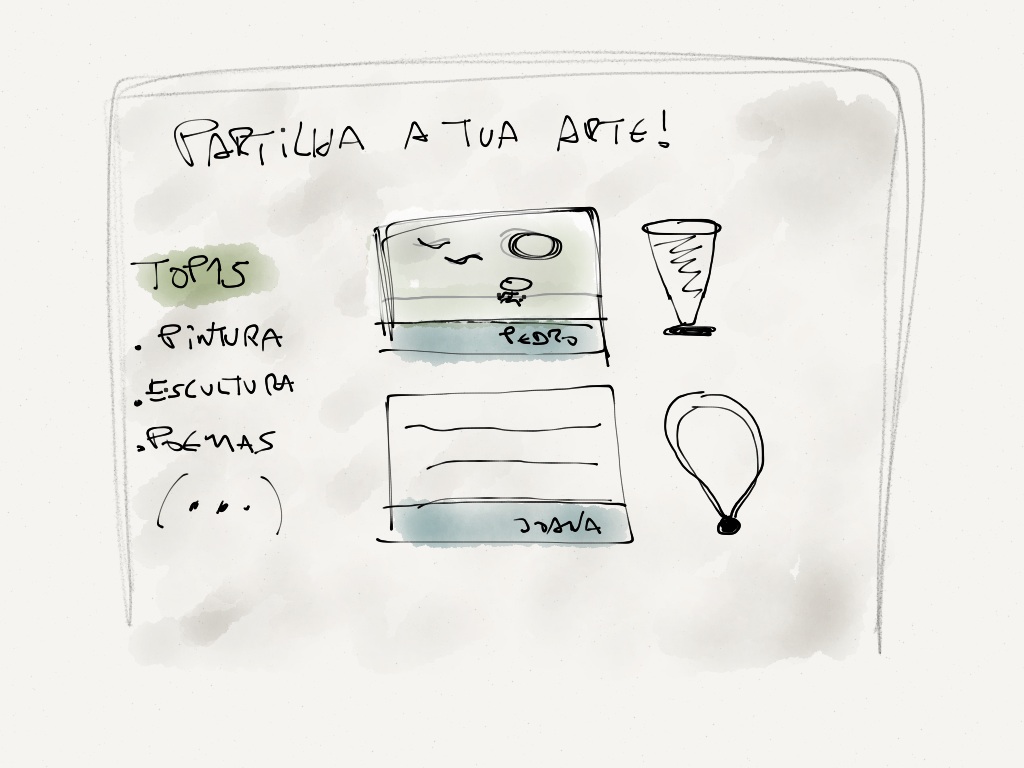 PARTiLHA A TUA ARTE!
TOP15
. PiNTURA
. ESCULTURA
. POEMAS
(...)
PEDRO
JOANA